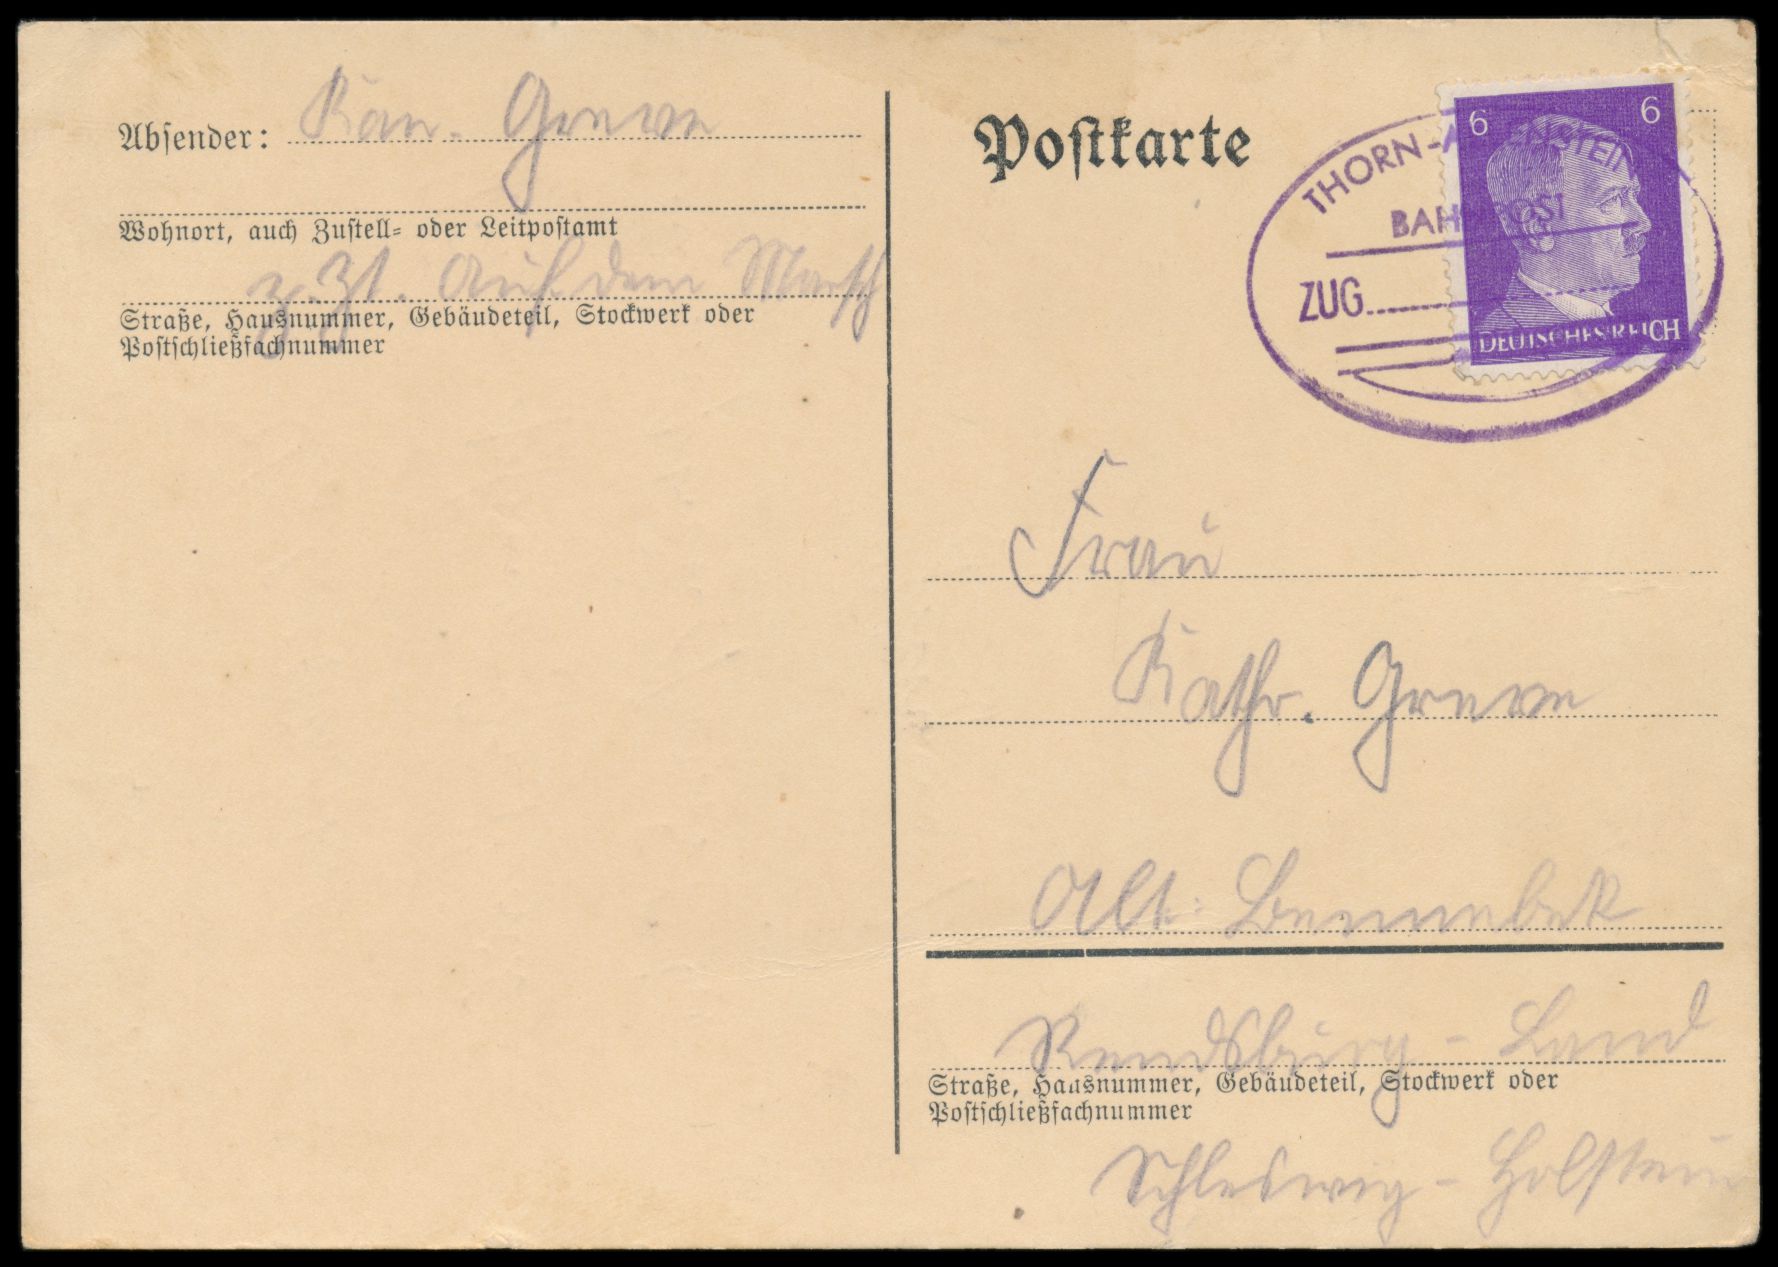 Absender: Kan. Greve
Wohnort, auch Zustell- oder Leitpostamt
z. Zt. Auf dem Marsch
Straße, Hausnummer, Gebäudeteil, Stockwerk oder
Postschließfachnummer
Postkarte
THORN-ALLENSTEIN
BAHNPOST
ZUG
6 6
DEUTSCHES REICH
Frau
Kathr. Greve
Alt: Bennebek
Rendsburg - Land
Straße, Hausnummer, Gebäudeteil, Stockwerk oder
Postschließfachnummer
Schleswig - Holstein